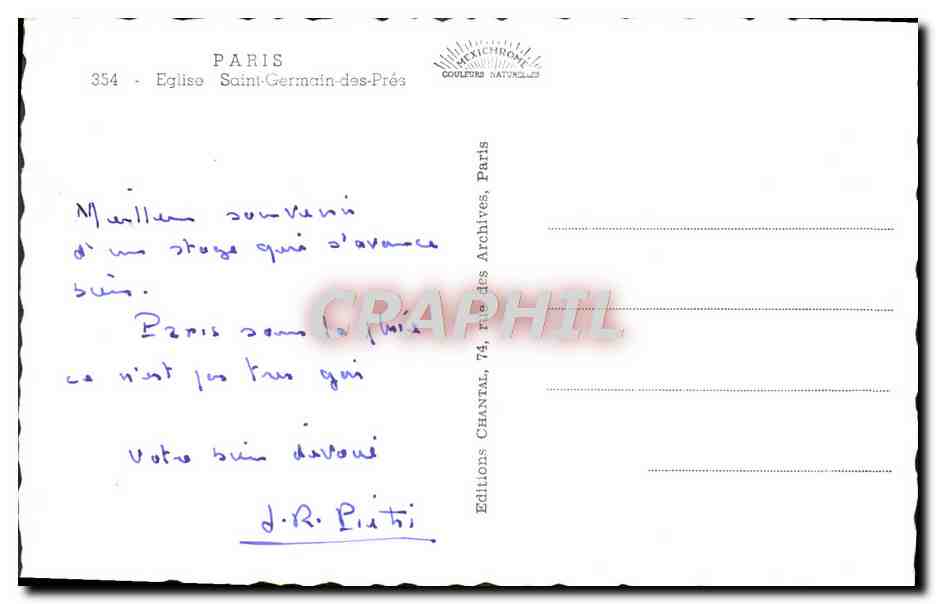 PARIS
354 - Eglise Saint-Germain-des-Prés
MEXICHROME
COULEURS NATURELLES
Meilleur souvenir
d'un stage qui s'avance
bien.
Paris sous la pluie
ce n'est pas très gai
Votre bien dévoué
J.R. Pietri
Editions CHANTAL, 74, rue des Archives, Paris
CRAPHIL